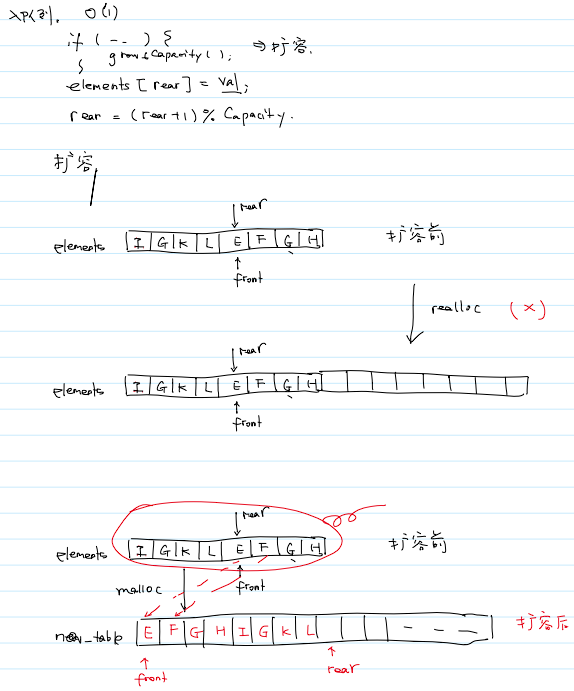 入队列. O(1)
if (--) {
grow_capacity(); ⇒ 扩容.
}
elements [rear] = val;
rear = (rear+1) % Capacity.
扩容
rear
elements I G K L E F G H 扩容前
front
realloc (×)
rear
elements I G K L E F G H
front
rear
elements I G K L E F G H 扩容前
malloc front
new_table E F G H I G K L - - - 扩容后
front rear